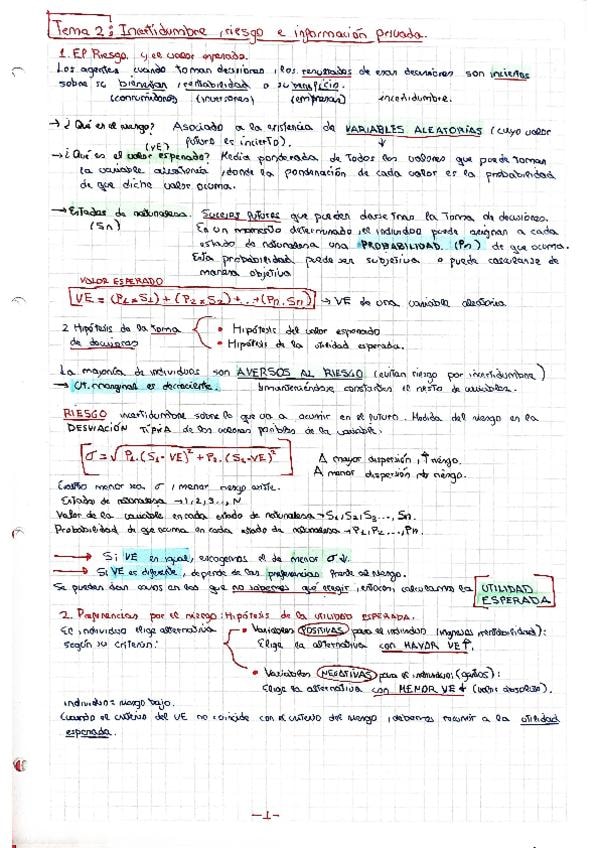 Tema 2: Incertidumbre, riesgo e información privada.
1. El Riesgo y el valor esperado.
Los agentes cuando toman decisiones, los resultados de esas decisiones son inciertos
sobre su bienestar, rentabilidad o su beneficio.
(consumidores) (inversores) (empresas) incertidumbre.
→ ¿Qué es el riesgo? Asociado a la existencia de VARIABLES ALEATORIAS (cuyo valor
futuro es incierto).
(VE)
→ ¿Qué es el valor esperado? Media ponderada de todos los valores que puede tomar
la variable aleatoria, donde la ponderación de cada valor es la probabilidad
de que dicho valor ocurra.
→ Estados de naturaleza. Sucesos futuros que pueden darse tras la toma de decisiones.
(Sn) En un momento determinado, el individuo puede asignar a cada
estado de naturaleza una PROBABILIDAD (Pn) de que ocurra.
Esta probabilidad puede ser subjetiva o puede calcularse de
manera objetiva
VALOR ESPERADO
VE = (P1×S1) + (P2×S2) + ... + (Pn·Sn) → VE de una variable aleatoria.
2 Hipótesis de la toma • Hipótesis del valor esperado
de decisiones • Hipótesis de la utilidad esperada.
La mayoría de individuos son AVERSOS AL RIESGO (evitan riesgo por incertidumbre)
→ Ut. marginal es decreciente. manteniéndose constantes el resto de variables.
RIESGO incertidumbre sobre lo que va a ocurrir en el futuro. Medida del riesgo es la
DESVIACIÓN TÍPICA de los valores posibles de la variable:
σ = √P1·(S1-VE)² + P2·(S2-VE)² A mayor dispersión, ↑ riesgo.
A menor dispersión ↓ riesgo.
Cuanto menor sea σ, menor riesgo existe.
Estados de naturaleza → 1, 2, 3..., N
Valor de la variable en cada estado de naturaleza → S1, S2, S3..., Sn.
Probabilidad de que ocurra en cada estado de naturaleza → P1, P2..., Pn.
→ Si VE es igual, escogemos el de menor σ ↓.
→ Si VE es diferente, depende de las preferencias frente al riesgo.
Se pueden dar casos en los que no sabemos qué elegir, entonces calculamos la UTILIDAD
ESPERADA
2. Preferencias por el riesgo: Hipótesis de la UTILIDAD ESPERADA.
El individuo elige alternativa • Variables POSITIVAS para el individuo (ingresos, rentabilidad):
según su criterio: Elige la alternativa con MAYOR VE ↑.
• Variables NEGATIVAS para el individuo (gastos):
Elige la alternativa con MENOR VE ↓ (valor absoluto).
individuo = riesgo bajo.
Cuando el criterio del VE no coincide con el criterio del riesgo, debemos recurrir a la utilidad
esperada.
-1-